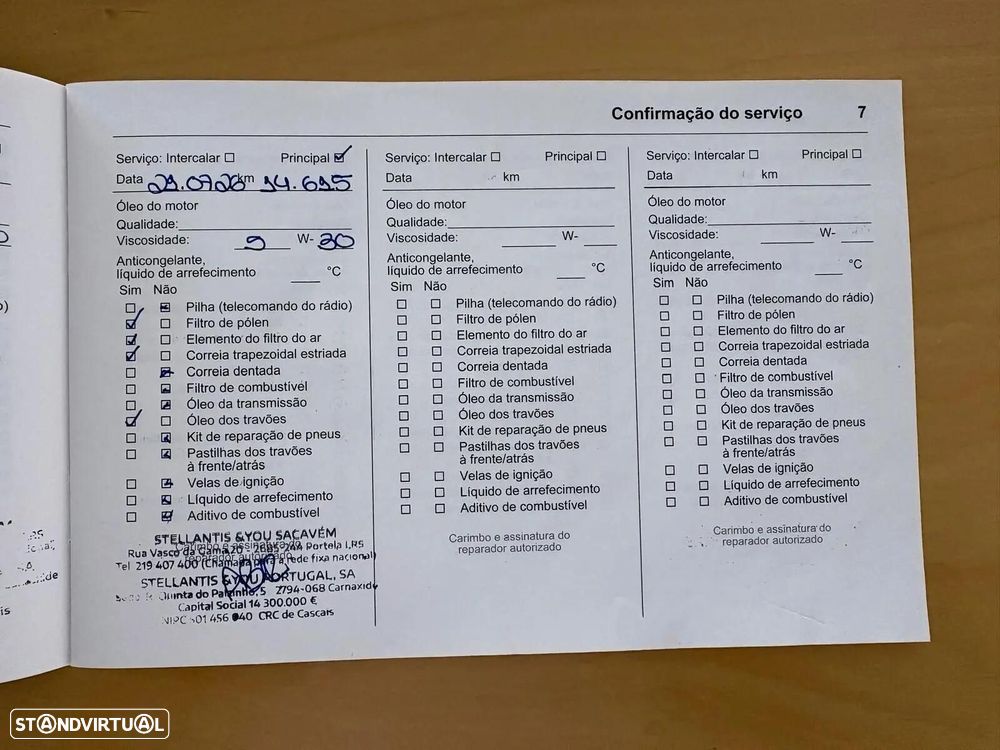 Confirmação do serviço 7
Serviço: Intercalar ☐ Principal ☑
Data 29.0726 km 94.695
Óleo do motor
Qualidade:
Viscosidade: 9 W- 30
Anticongelante,
líquido de arrefecimento °C
Sim Não
Pilha (telecomando do rádio)
Filtro de pólen
Elemento do filtro do ar
Correia trapezoidal estriada
Correia dentada
Filtro de combustível
Óleo da transmissão
Óleo dos travões
Kit de reparação de pneus
Pastilhas dos travões
à frente/atrás
Velas de ignição
Líquido de arrefecimento
Aditivo de combustível
STELLANTIS &YOU SACAVÉM
Carimbo e assinatura do
Rua Vasco da Gama 20 - 2685-244 Portela LRS
reparador autorizado
Tel 219 407 400 (Chamada para a rede fixa nacional)
STELLANTIS &YOU PORTUGAL, SA
Quinta do Paizinho, 5 2794-068 Carnaxide
Capital Social 14 300.000 €
NIPC 501 456 040 CRC de Cascais
Serviço: Intercalar ☐ Principal ☐
Data km
Óleo do motor
Qualidade:
Viscosidade: W-
Anticongelante,
líquido de arrefecimento °C
Sim Não
Pilha (telecomando do rádio)
Filtro de pólen
Elemento do filtro do ar
Correia trapezoidal estriada
Correia dentada
Filtro de combustível
Óleo da transmissão
Óleo dos travões
Kit de reparação de pneus
Pastilhas dos travões
à frente/atrás
Velas de ignição
Líquido de arrefecimento
Aditivo de combustível
Carimbo e assinatura do
reparador autorizado
Serviço: Intercalar ☐ Principal ☐
Data km
Óleo do motor
Qualidade:
Viscosidade: W-
Anticongelante,
líquido de arrefecimento °C
Sim Não
Pilha (telecomando do rádio)
Filtro de pólen
Elemento do filtro do ar
Correia trapezoidal estriada
Correia dentada
Filtro de combustível
Óleo da transmissão
Óleo dos travões
Kit de reparação de pneus
Pastilhas dos travões
à frente/atrás
Velas de ignição
Líquido de arrefecimento
Aditivo de combustível
Carimbo e assinatura do
reparador autorizado
STANDVIRTUAL